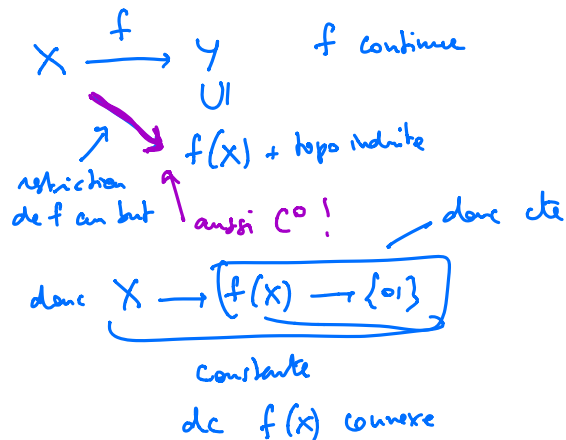 X f→ Y f continue
UI
f(X) + topo induite
restriction
de f au but
aussi C⁰ !
donc cte
donc X → f(X) → {01}
constante
dc f(X) connexe